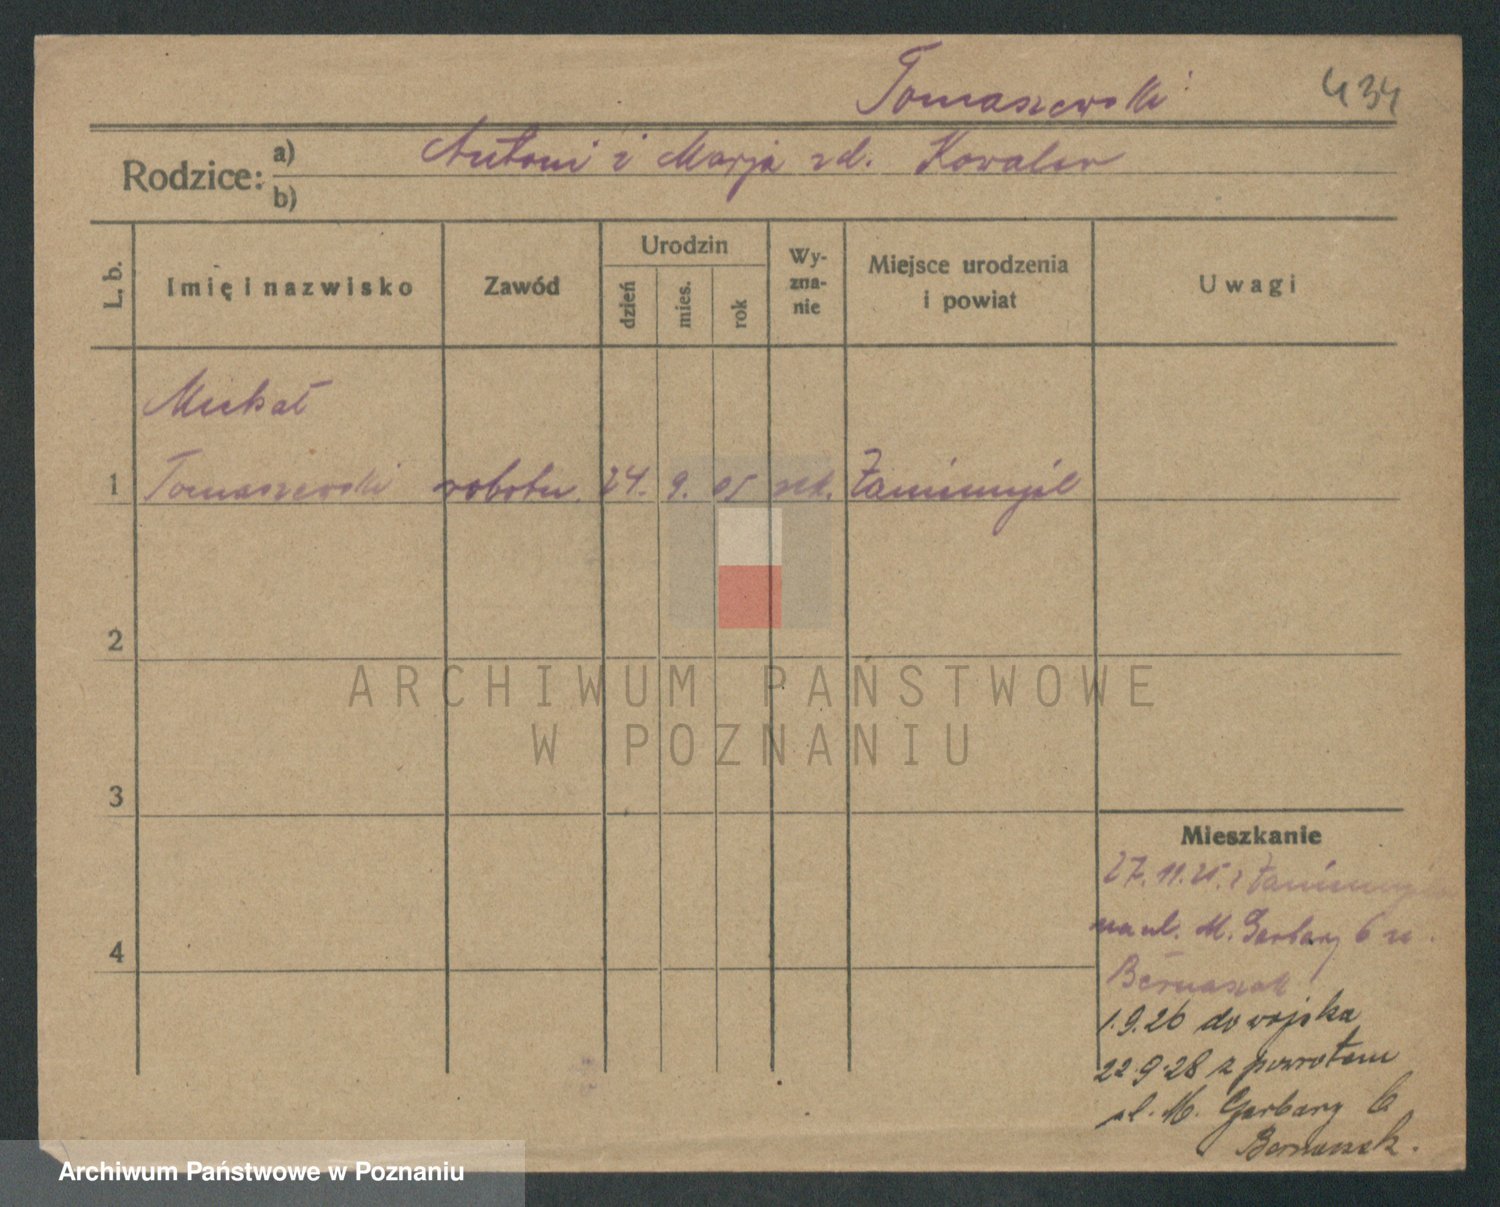 Tomaszewski 434
Rodzice: a) Antoni i Marja zd. Kowalew
b)
L. b.
Imię i nazwisko
Zawód
Urodzin
dzień
mies.
rok
Wy-
zna-
nie
Miejsce urodzenia
i powiat
Uwagi
Michał
1 Tomaszewski robotn. 24. 9. 05 rzk. Zaniemyśl
2
ARCHIWUM PAŃSTWOWE
W POZNANIU
3
4
Mieszkanie
27.11.25. z Zaniemyśla
na ul. M. Garbary 6 u.
Bernaszak
1.9.26 do wojska
22.9.28 z powrotem
ul. M. Garbary 6
Bernaszak.
Archiwum Państwowe w Poznaniu